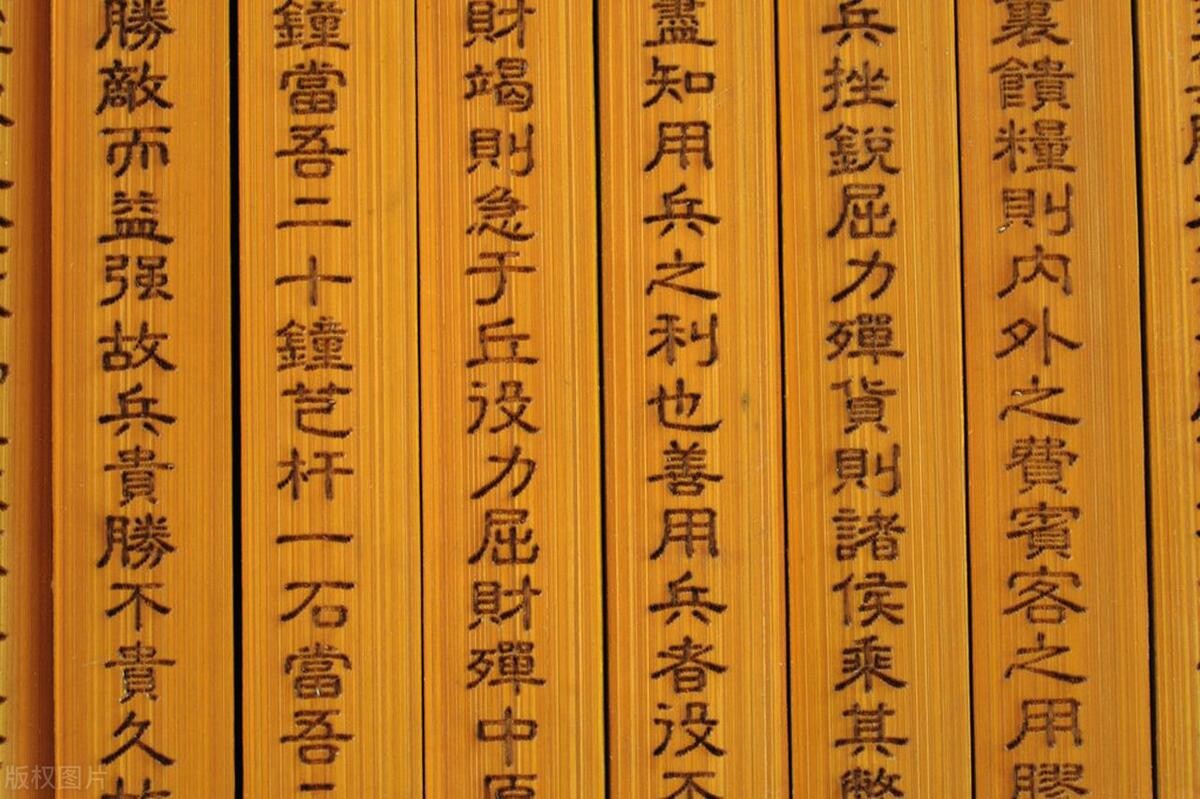 裏饋糧則内外之費賓客之用膠
兵挫銳屈力殫貨則諸侯乘其
盡知用兵之利也善用兵者役不
財竭則急于丘役力屈財殫中原
鐘當吾二十鐘芑杆一石當吾二
勝敵而益强故兵貴勝不貴久故
版权图片